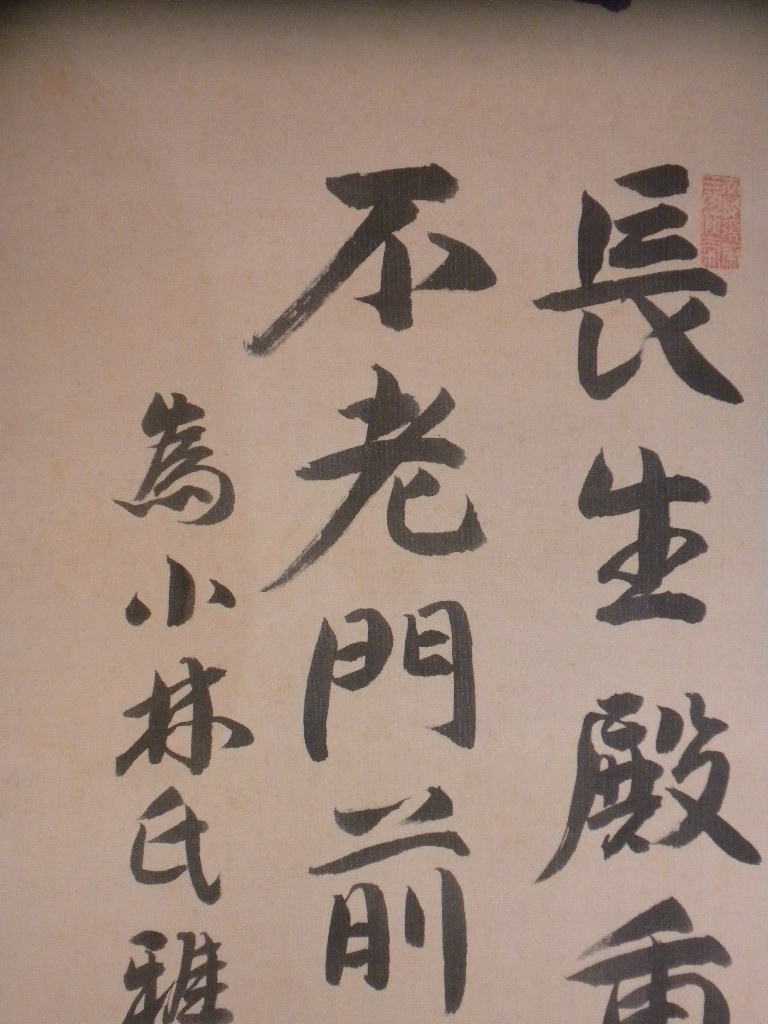 長生殿重
不老門前
為小林氏雅